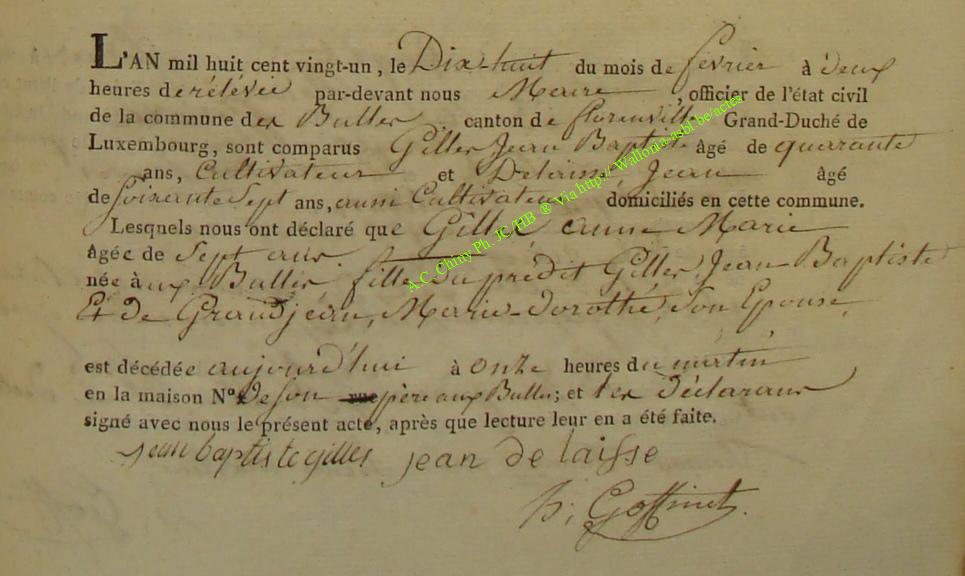 L'AN mil huit cent vingt-un, le Dix-huit du mois de fevrier à deux
heures de rélévée par-devant nous Maire, officier de l'état civil
de la commune des Bulles canton de florenville Grand-Duché de
Luxembourg, sont comparus Gilles Jean Baptiste âgé de quarante
ans, Cultivateur et Delaisse Jean âgé
de Soixante Sept ans, aussi Cultivateur domiciliés en cette commune.
Lesquels nous ont déclaré que Gilles anne Marie
âgée de Sept ans
née à aux Bulles fille du prédit Gilles Jean-Baptiste
Et de Grandjean, Marie-dorothé, Son Epouse,
est décédée aujourd'hui à onze heures du matin
en la maison N° de son rue père aux Bulles; et les déclarans
signé avec nous le présent acte, après que lecture leur en a été faite.
jean baptiste gilles jean de laisse
h, Goffinet.
A.C. Chiny Ph. JC/HB ® Via http://Wallonia-asbl.be/actes